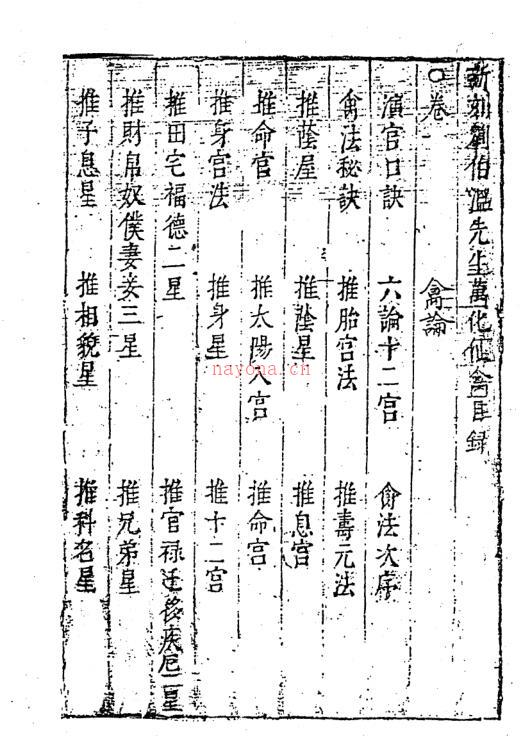 新刻劉伯溫先生萬化仙禽目録
○卷一　禽論
演宮口訣　六論十二宮　禽法次序
禽法秘訣　推胎宮法　推壽元法
推蔭屋　推蔭星　推息宮
推命官　推太陽入宮　推命宮
推身宮法　推身星　推十二宮
推田宅福德二星　推官禄迁移疾厄二星
推財帛奴僕妻妾三星　推兄弟星
推子息星　推相貌星　推科名星
nayona.cn